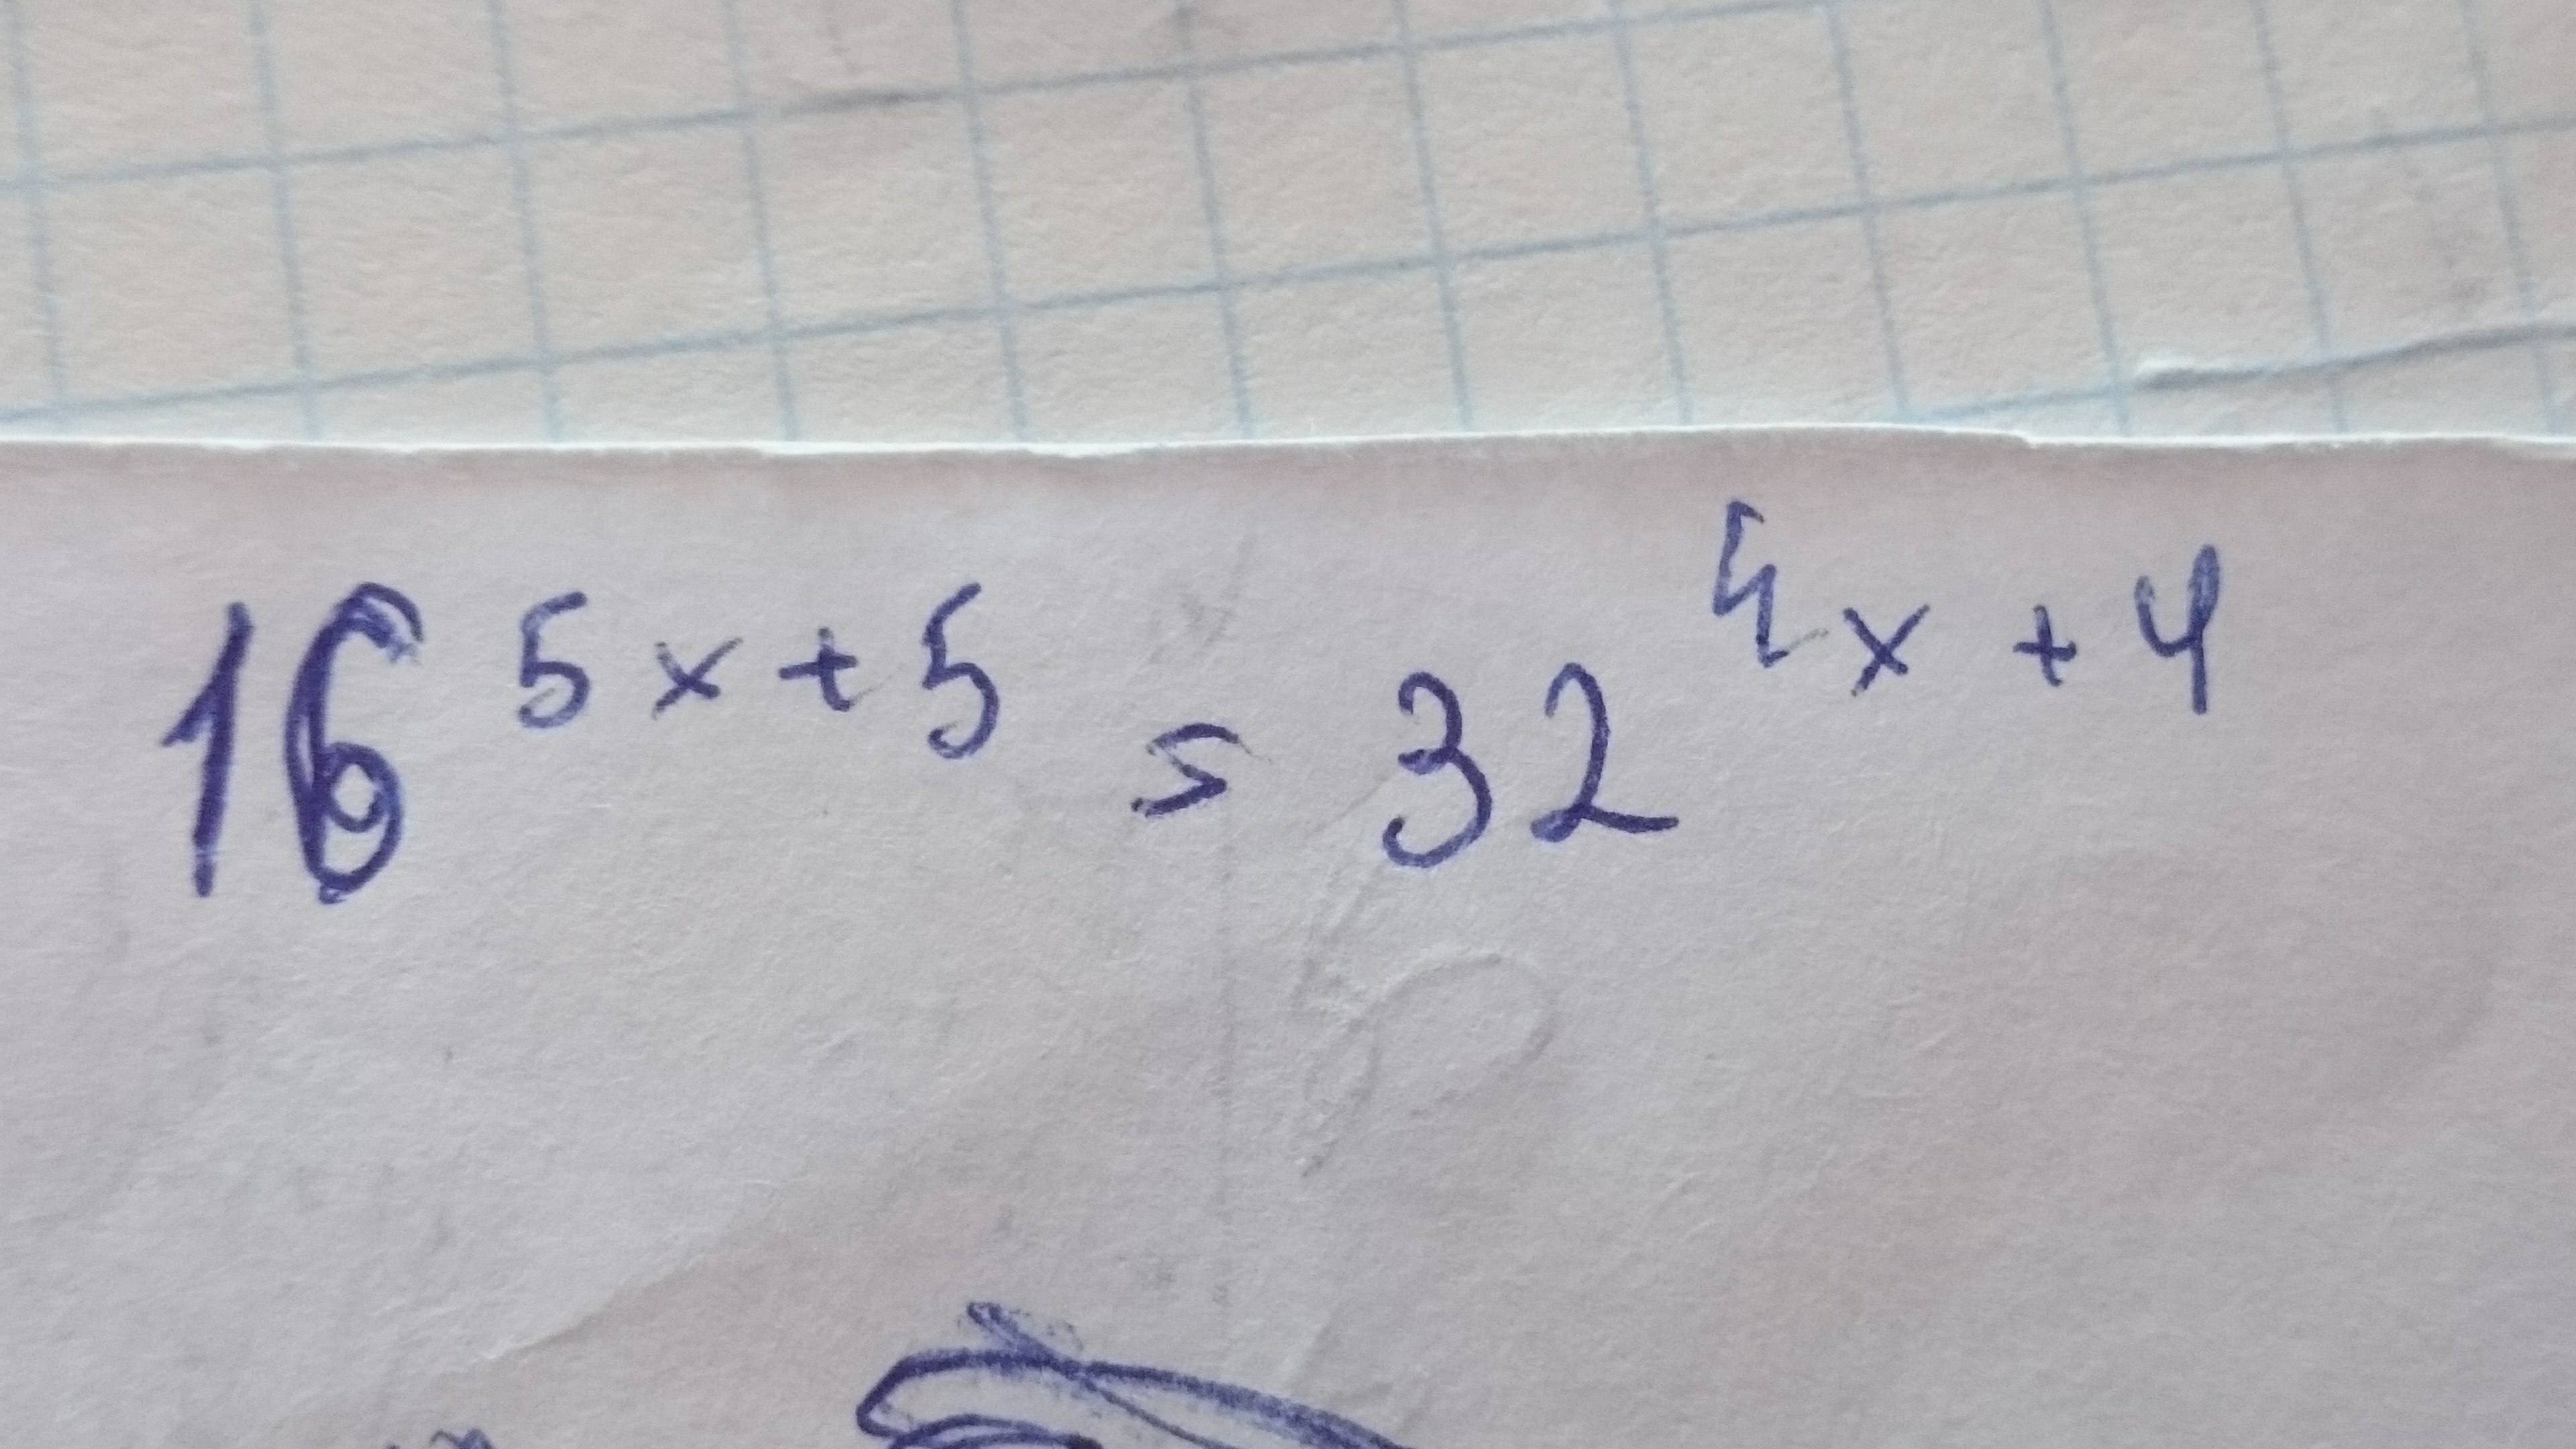 16^{5x+5} = 32^{4x+4}